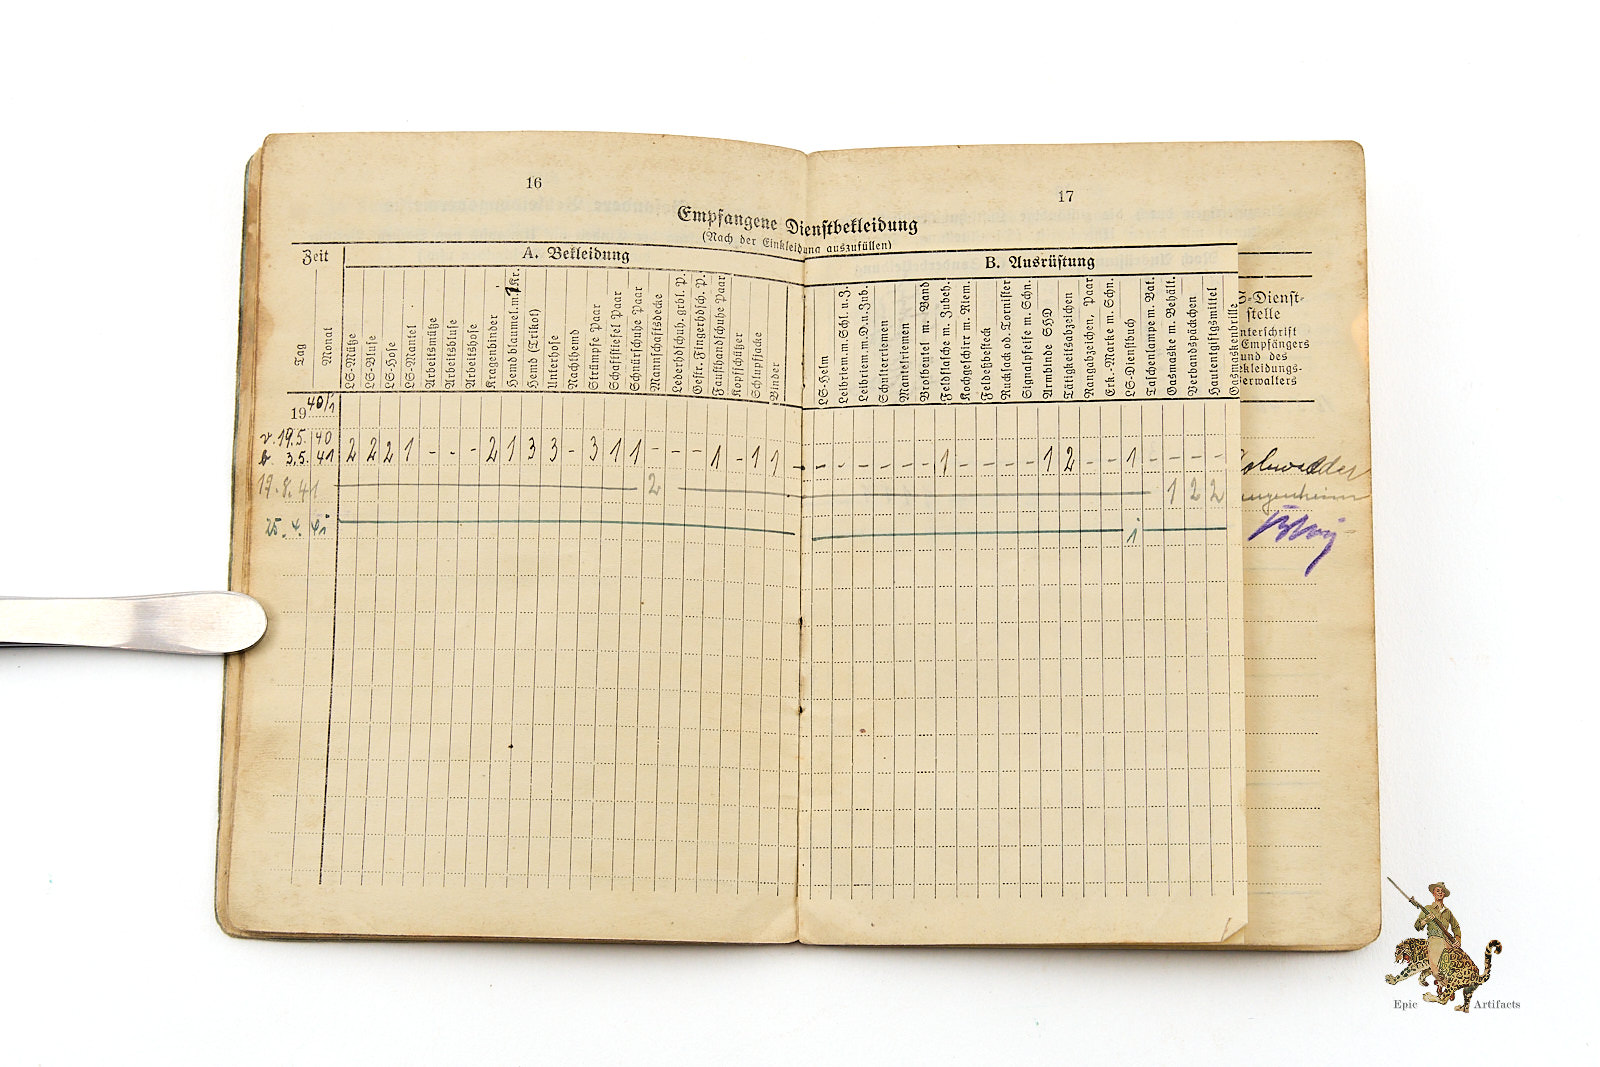 16
17
Empfangene Dienstbekleidung
(Nach der Einkleidung auszufüllen)
Zeit
A. Bekleidung
B. Ausrüstung
Tag
Monat
LS-Mütze
LS-Bluse
LS-Hose
LS-Mantel
Arbeitsmütze
Arbeitsbluse
Arbeitshose
Kragenbinder
Hemd blaumel. m. 1 Kr.
Hemd (Trikot)
Unterhose
Nachthemd
Strümpfe Paar
Schaftstiefel Paar
Schnürschuhe Paar
Mannschaftsdecke
Lederhdschuh. grbl. P.
Gestr. Fingerhdsch. P.
Fausthandschuhe Paar
Kopfschützer
Schlupfjacke
Binder
LS-Helm
Leibriem. m. Schl. u. Z.
Leibriem. m. D. u. Zub.
Schulterriemen
Mantelriemen
Brotbeutel m. Band
Feldflasche m. Zubeh.
Kochgeschirr m. Riem.
Feldeßbesteck
Rucksack od. Tornister
Signalpfeife m. Schn.
Armbinde SHD
Tätigkeitsabzeichen
Rangabzeichen, Paar
Erk.-Marke m. Schn.
LS-Dienstbuch
Taschenlampe m. Bat.
Gasmaske m. Behält.
Verbandspäckchen
Hautentgiftgsmittel
Gasmaskenbrille
S-Dienst-
stelle
nterschrift
Empfängers
und des
ekleidungs-
erwalters
19 40/1
v. 19.5. 40
b. 3.5. 41 2 2 2 1 - - - 2 1 3 3 - 3 1 1 - - - 1 - 1 1 - - - - - - 1 - - - - 1 2 - - 1 - - - - -
19.8.41 2 1 2 2
25. 4. 41 1